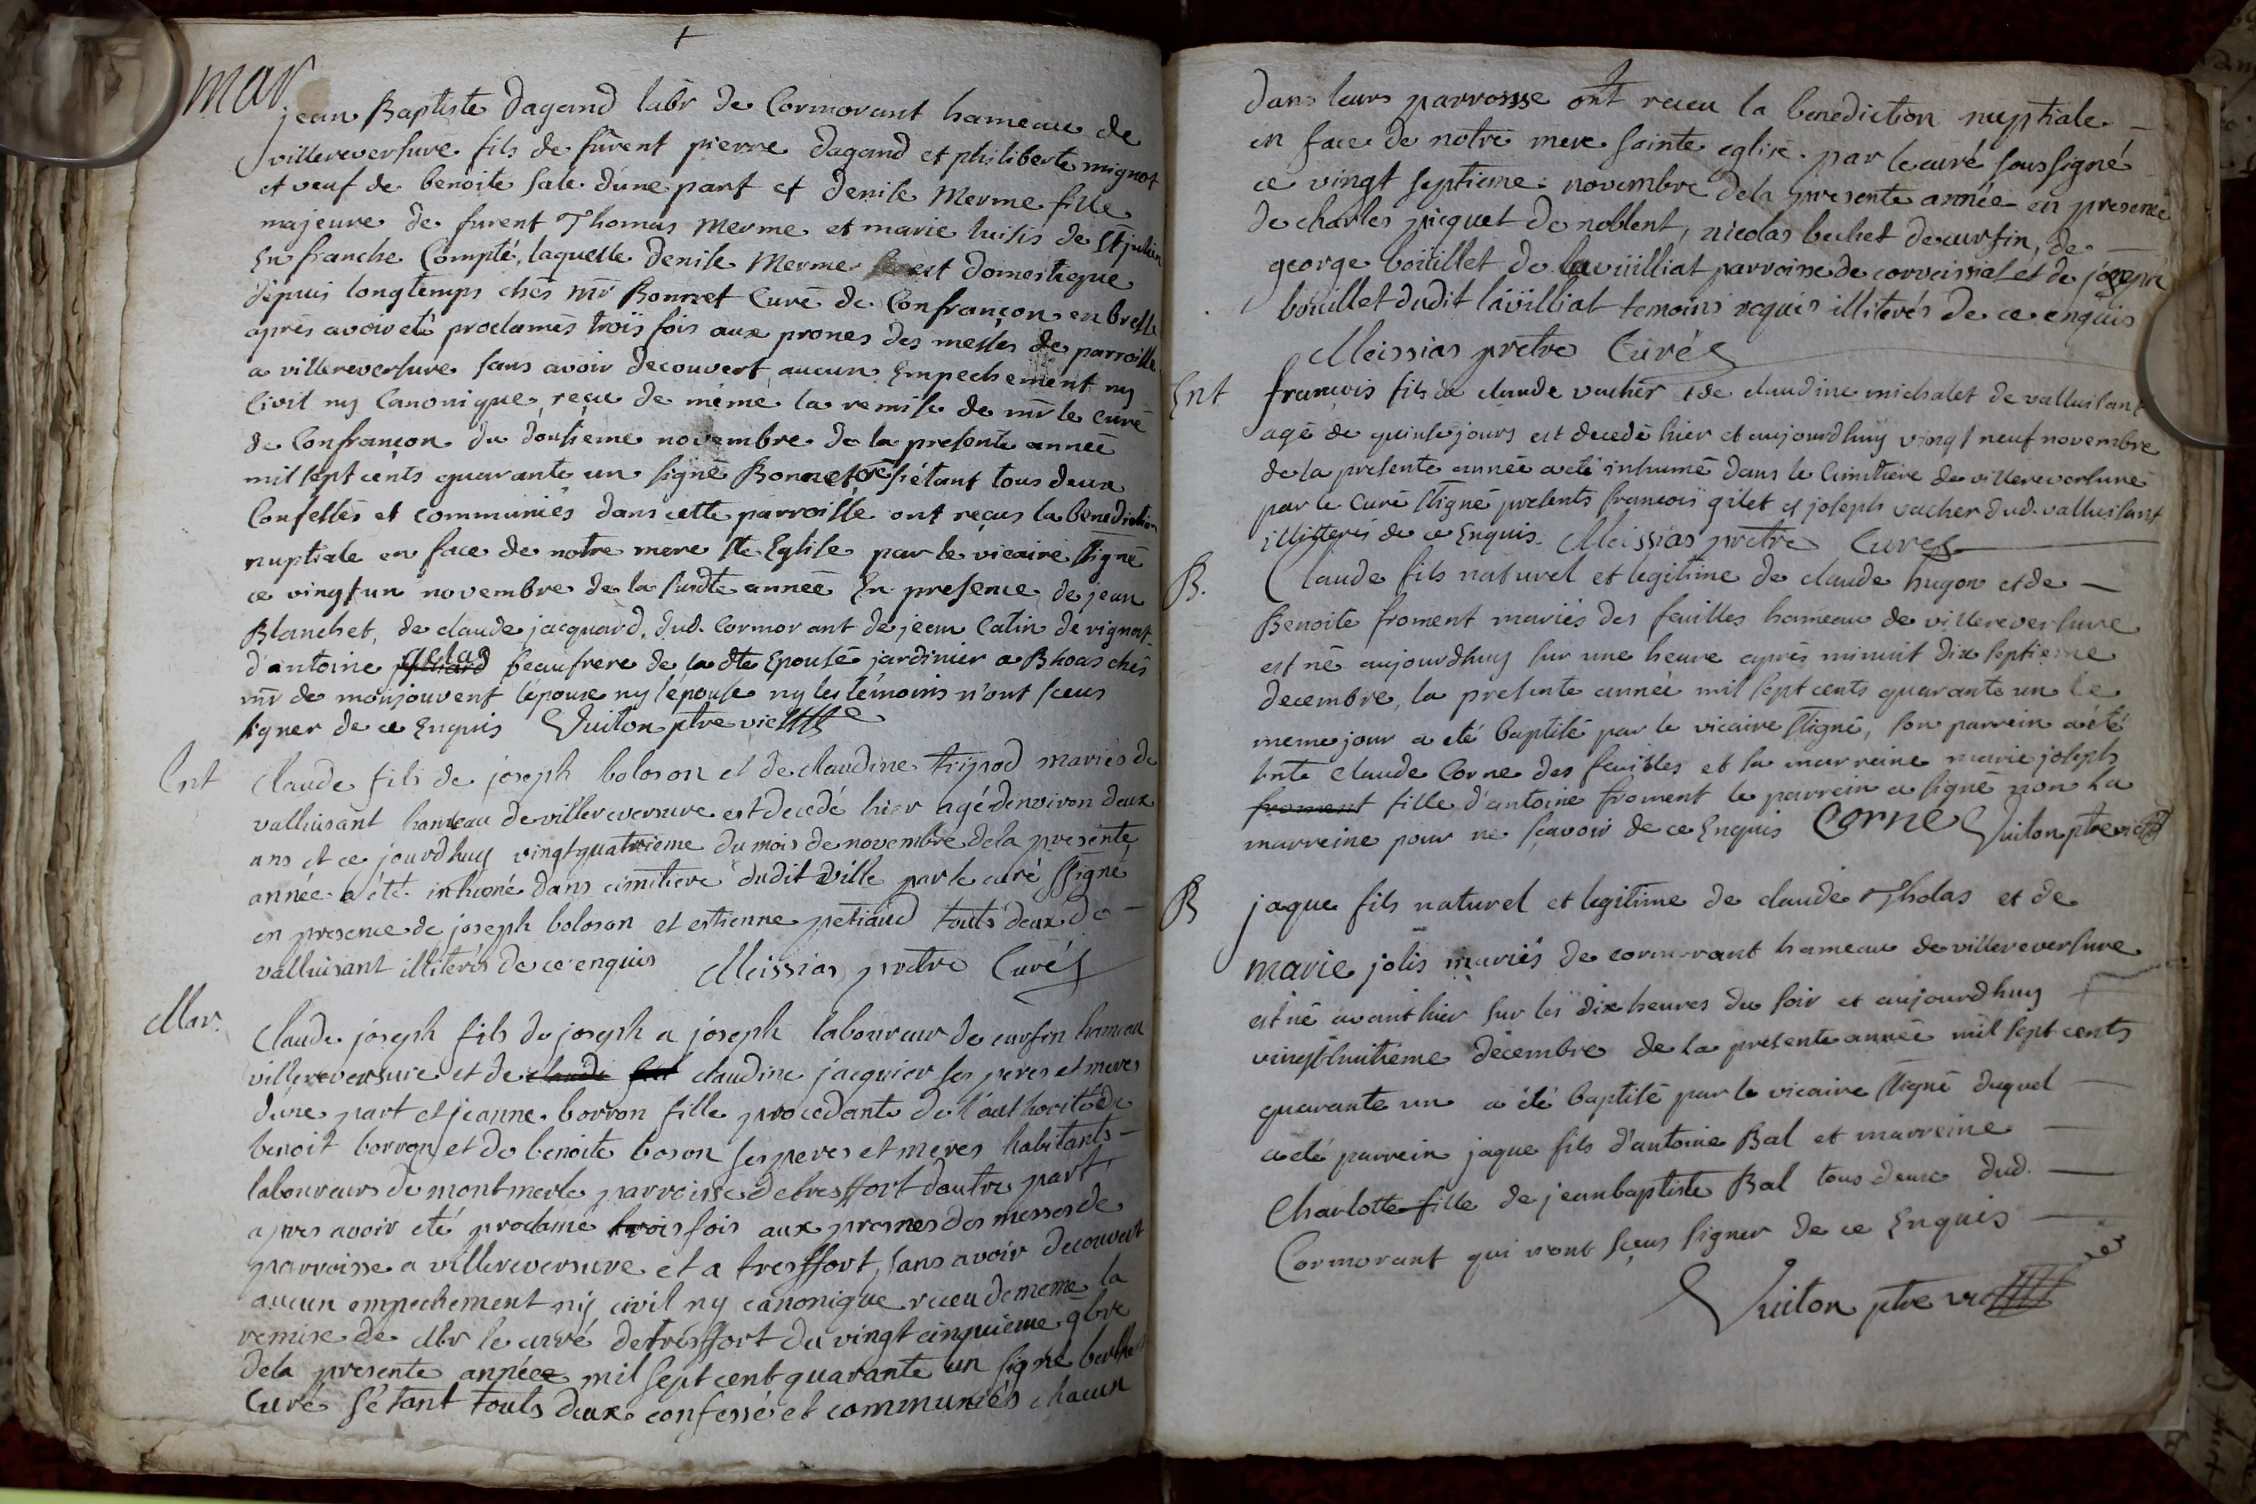 mar
jean Baptiste Dagand labr de Cormorant hameau de
villereversure fils de fûrent pierre Dagand et philiberte mignot
et veuf de benoite sale d'une part et Denise Merme fille
majeure de furent Thomas Merme et marie luisis de St julien
En franche Compté, laquelle Denise Merme est Domestique
depuis longtemps chés mr Bonnet Curé de Confrançon en bresse
après avoir eté proclamés trois fois aux prones des messes de parroisse
a villereversure sans avoir decouvert aucun Empechement ny
Civil ny Canonique, reçu de même la remise de mr le curé
de Confrançon du douzieme novembre de la presente année
mil sept cents quarante un signé Bonnet cré s'étant tous deux
Confessés et communiés dans cette parroisse ont reçus la benediction
nuptiale en face de notre mere Ste Eglise par le vicaire ssigné
ce vingt un novembre de la susdte année En presence de jean
Blanchet, de claude jacquard, dud. Cormorant de jean Catin de vignat
d'antoine gelas beaufrere de la dte Epouse jardinier a Bhoas chés
mr de monjouvent l'époux ny l'épouse ny les témoins n'ont sceus
signer de ce Enquis Vuiton ptre vic
Ent claude fils de joseph boloson et de claudine tripod mariés de
valluisant hameau de villereversure est decedé hier agé denviron deux
ans et ce jourdhuy vingt quatrieme du mois de novembre dela presente
année a été inhumé dans cimitiere dudit ville par le curé ssigné
en presence de joseph boloson et estienne petiaud touts deux de
valluisant illiterés de ce enquis Meissias pretre Curé
Mar. Claude joseph fils de joseph a joseph laboureur de cursin hameau
villereversure et de claudine jacquier ses peres et meres
dune part et jeanne borron fille procedante de l'authorité de
benoit borron et de benoite boson ses peres et meres habitants
laboureurs de montmerle parroisse de tresffort dautre part
apres avoir eté proclamé trois fois aux prosnes des messes de
parroisse a villereversure et a tresffort, sans avoir decouvert
aucun empechement ny civil ny canonique receu de meme la
remise de Mr le curé de tresffort du vingt cinquieme 9bre
dela presente année mil sept cent quarante un signé
Curé s'étant touts deux confessé et communiés chacun
dans leurs parroisse ont receu la benediction nuptiale
en face de notre mere sainte eglise par le curé soussigné
ce vingt septieme novembre dela presente année en presence
de charles picquet de noblent, nicolas bechet de cursin, de
george boüillet de lavüilliat parroisse de corveissiat et de joseph
boüillet dudit lavüilliat temoins requis illiterés de ce enquis
Meissias pretre Curé
Ent françois fils de claude vacher et de claudine michalet de valluisant
agé de quinse jours est decedé hier et aujourdhuy vingt neuf novembre
de la presente année a eté inhumé dans le Cimitiere de villereversure
par le Curé ssigné presents françois gilet et joseph vacher dud. valluisant
illitterés de ce Enquis. Meissias pretre Curé
B. Claude fils naturel et legitime de claude hugon et de
Benoite froment mariés des feuilles hameau de villereversure
est né aujourdhuy sur une heure après minuit dix septieme
decembre, la presente année mil sept cents quarante un le
meme jour a eté baptisé par le vicaire ssigné, son parrein a été
hnte Claude Corne des feuilles et la marreine marie joseph
froment fille d'antoine froment le parrein a signé non la
marreine pour ne sçavoir de ce Enquis Corne Vuiton ptre vic
B jaque fils naturel et legitime de claude Tholas et de
marie jolis mariés de cormorant hameau de villereversure
est né avant hier sur les dix heures du soir et aujourdhuy
vingt huitieme decembre de la presente année mil sept cents
quarante un a été baptisé par le vicaire ssigné duquel
a eté parrein jaque fils d'antoine Bal et marreine
Charlotte fille de jeanbaptiste Bal tous deux dud.
Cormorant qui n'ont sçeus signer de ce Enquis
Vuiton ptre vic